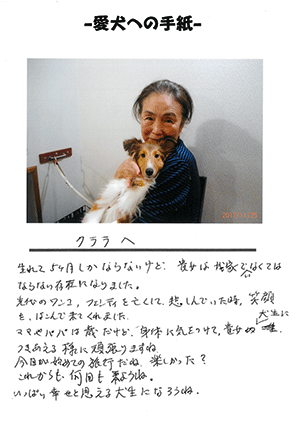 -愛犬への手紙-
クララ へ
生れて5ヶ月しかならないけど、貴女は我家でなくては
ならない存在になりました。
先代のワンコ、フェンディを亡くして悲しんでいた時、笑顔
を、はこんで来てくれました。
ママやパパは歳だけど、身体に気をつけて、貴女の犬生に
つきあえる様に頑張りますね。
今日が始めての旅行だね 楽しかった?
これからも、何回も来ようね。
いっぱい幸せと思える犬生になろうね。